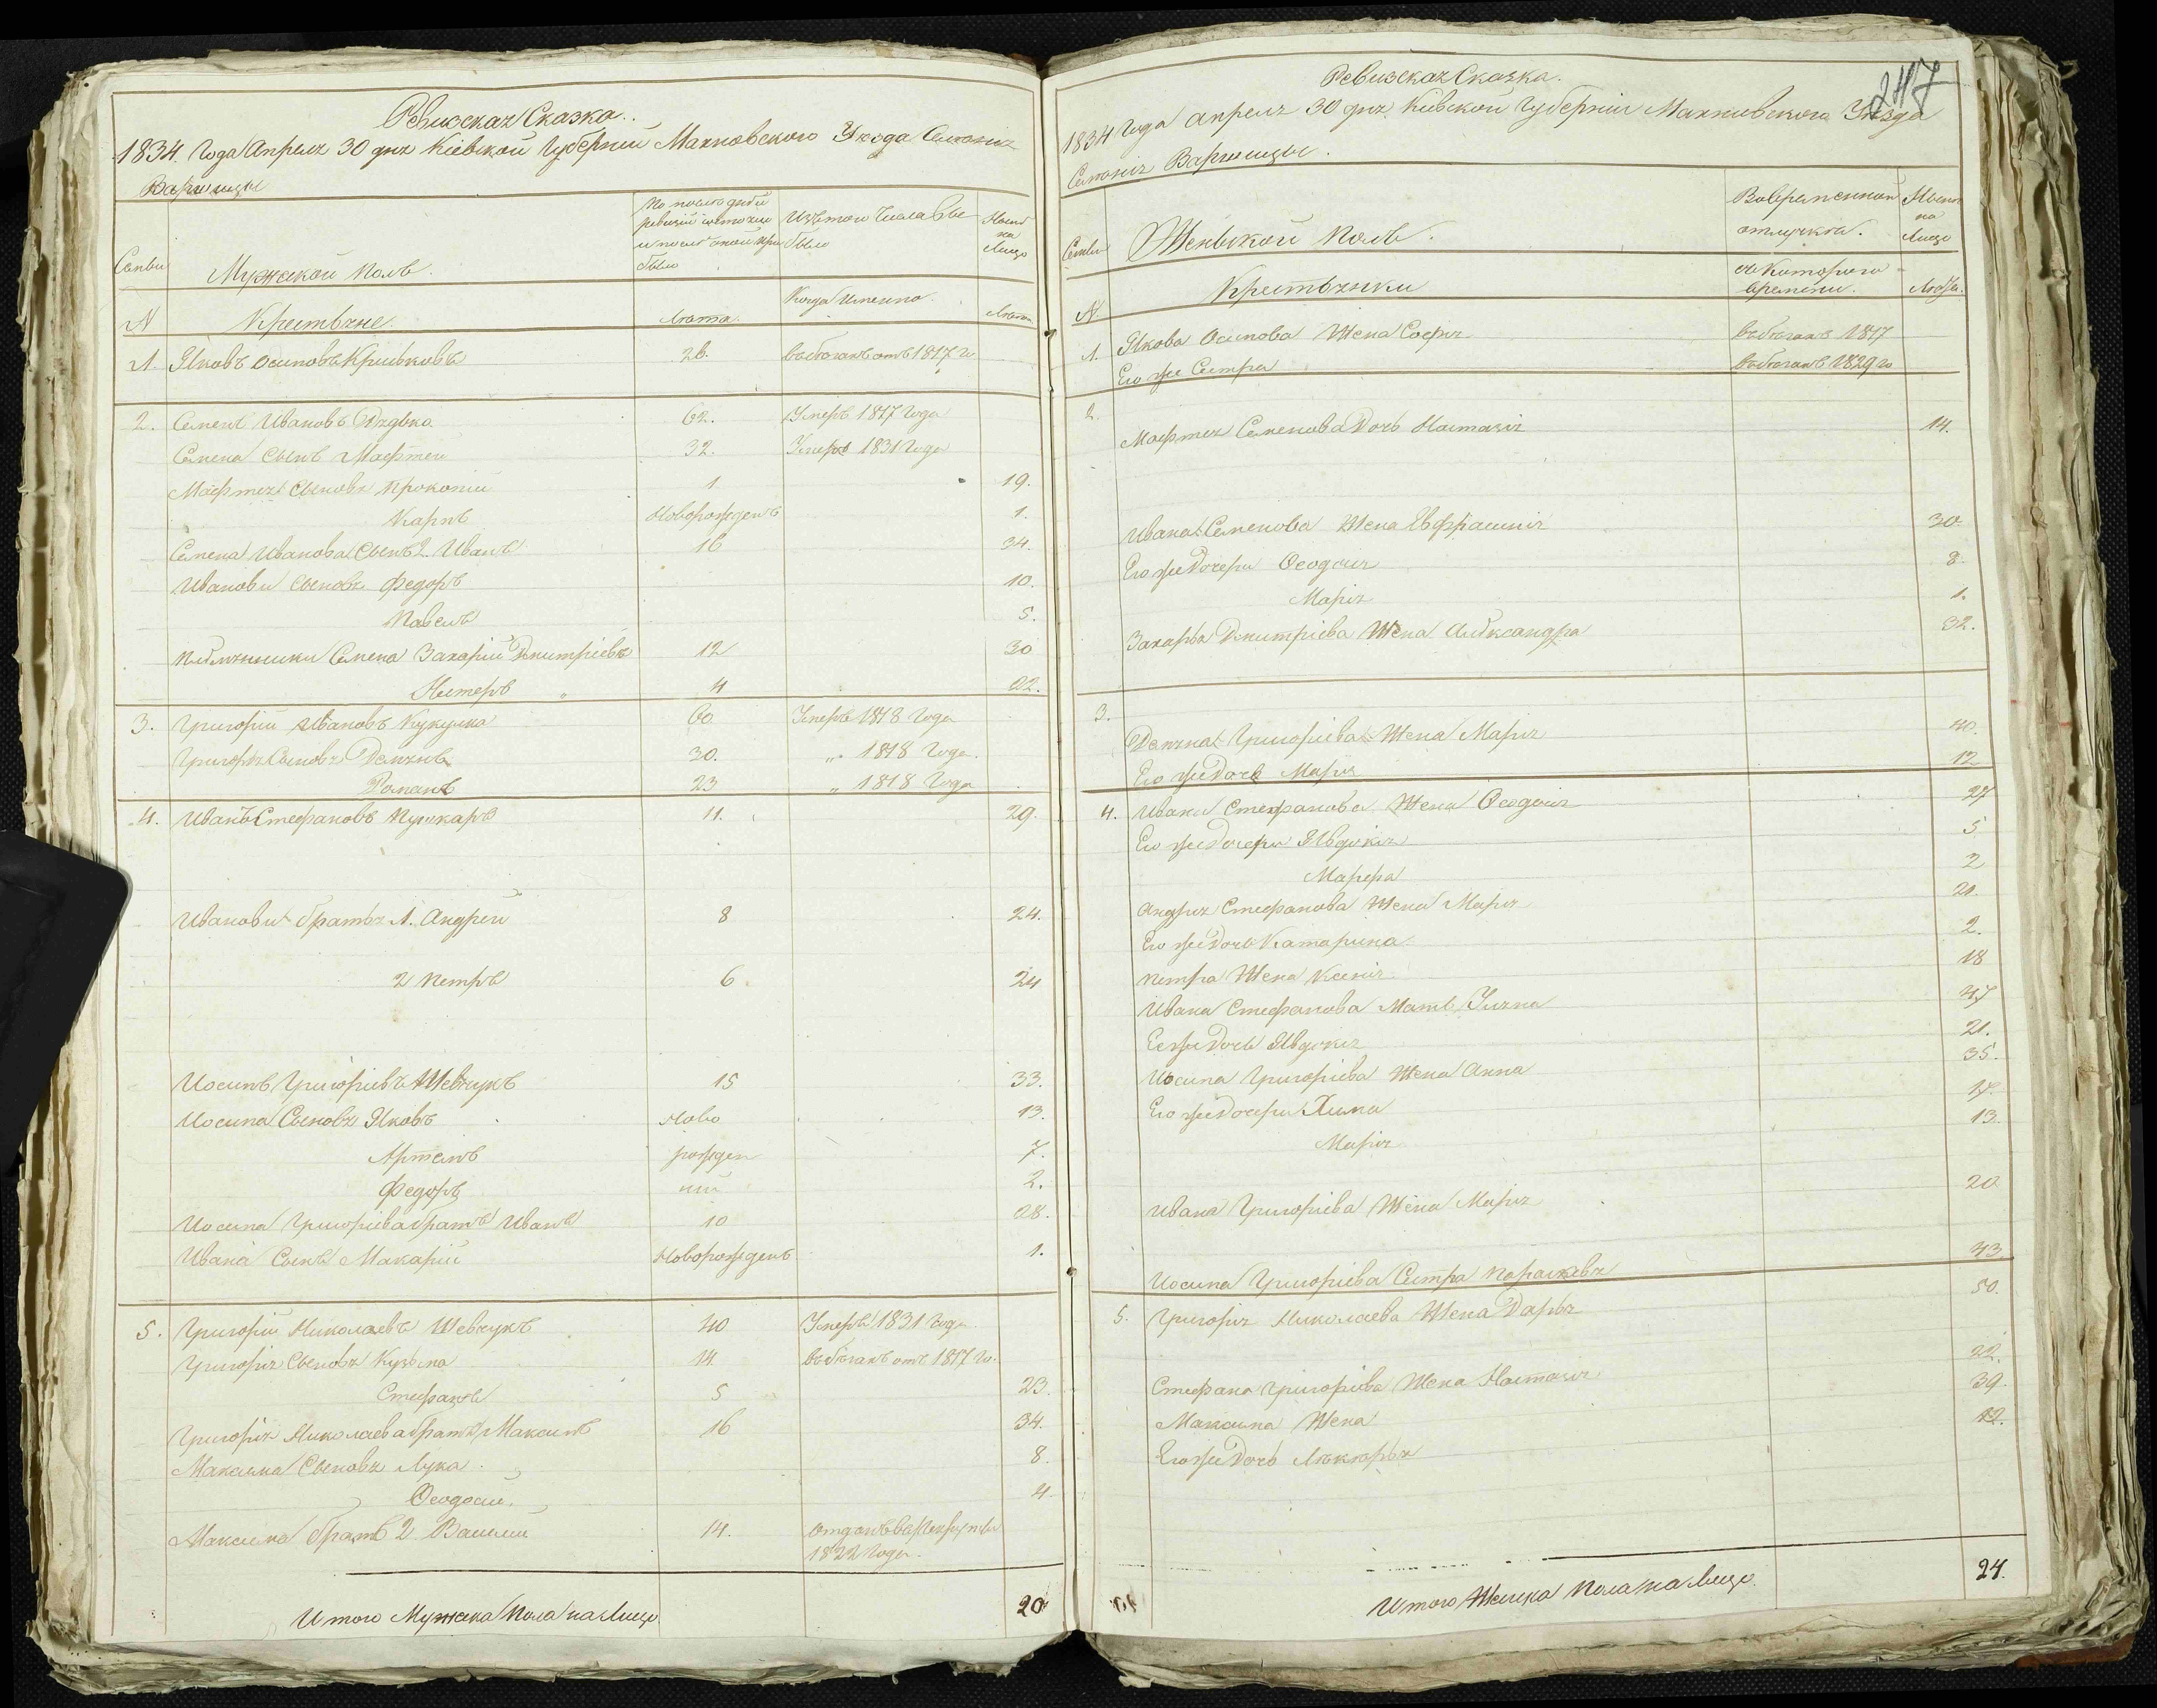 Ревизская Сказка.
1834. Года Апреля 30 дня Кіевской Губерніи Махновского Уезда Селенія
Варшицы
Семьи
Мужеской полъ.
по последней
ревизіи состояло
и после оной при
было
Изъ того числа вы
было
Ныне
на
Лицо
N
Крестьяне.
Лета.
Когда Именно.
Лета
1. Яковъ Осиповъ Крыльковъ 26. въ бегахъ отъ 1817 го
2. Семенъ Ивановъ Дядько 62. Умеръ 1817 года
Семена Сынъ Мафтей 32. Умеръ 1831 года
Мафтея Сыновя Прокопій 1. 19.
Карпъ Новорожденъ 1.
Семена Иванова Сынъ 2. Иванъ 16 34.
Ивановы Сыновя Федоръ 10.
Павелъ 5.
Племянники Семена Захарій Дмитріевъ 12 30
Нестеръ 4 22.
3. Григорій Ивановъ Кукушка 60 Умеръ 1818 года
Григорія Сыновя Демянъ 30. „ 1818 года.
Романъ 23 „ 1818 года
4. Иванъ Стефановъ Пушкаръ 11. 29.
Ивановы братья 1. Андрей 8 24.
2 Петръ 6. 24
Иосипъ Григоріевъ Шевчукъ 15 33.
Иосипа Сыновя Яковъ Ново 13.
Артемъ рожден 7.
Федоръ ны 2.
Иосипа Григоріева братъ Иванъ 10 28.
Ивана Сынъ Макарій Новорожденъ 1.
5. Григорій Николаевъ Шевчукъ 40 Умеръ 1831 года
Григорія Сыновя Кузьма 14. въ бегахъ отъ 1817 го.
Стефанъ 5 23.
Григорія Николаева братъ Максимъ 16 34.
Максима Сыновя Лука. 8.
Феодосій. 4.
Максима братъ 2 Василий 14. отданъ в рекруты
1822 года.
Итого Мужеска пола на лицо 20

247
Ревизская Сказка.
1834 года апреля 30 дня Кіевской Губерніи Махновского Уезда
Селенія Варшицы.
Семьи
Женской полъ.
Во временной
отлучке.
Ныне
на
Лицо
N.
Крестьянки
съ Которого
времени.
Лета.
1. Якова Осипова Жена Софія въ бегахъ 1817
Его же Сестра въ бегахъ 1829 го
2.
Мафтея Семенова Дочь Настасія 14.
Ивана Семенова Жена Евфросинія 30
Его же Дочери Феодосія 8.
Марія 1.
Захарія Дмитріева Жена Александра 32.
3.
Демяна Григоріева Жена Марія 40.
Его же Дочь Марія 12
4. Ивана Стефанова Жена Феодосія 27
Его же Дочери Явдокія 5
Марфа 2
Андрея Стефанова Жена Марія 21.
Его же Дочь Катарина 2.
Петра Жена Ксенія 18
Ивана Стефанова Мать Уляна 47
Ее же Дочь Явдокія 21.
Иосипа Григоріева Жена Анна 35.
Его же Дочери Химка 17.
Марія 13.
Ивана Григоріева Жена Марія 20
Иосипа Григоріева Сестра Параскевія 43
5. Григорія Николаева Жена Дарья 50.
Стефана Григоріева Жена Настасія 22.
Максима Жена 39.
Его же Дочь Лукерья 12.
Итого Женска Пола на Лицо. 24.